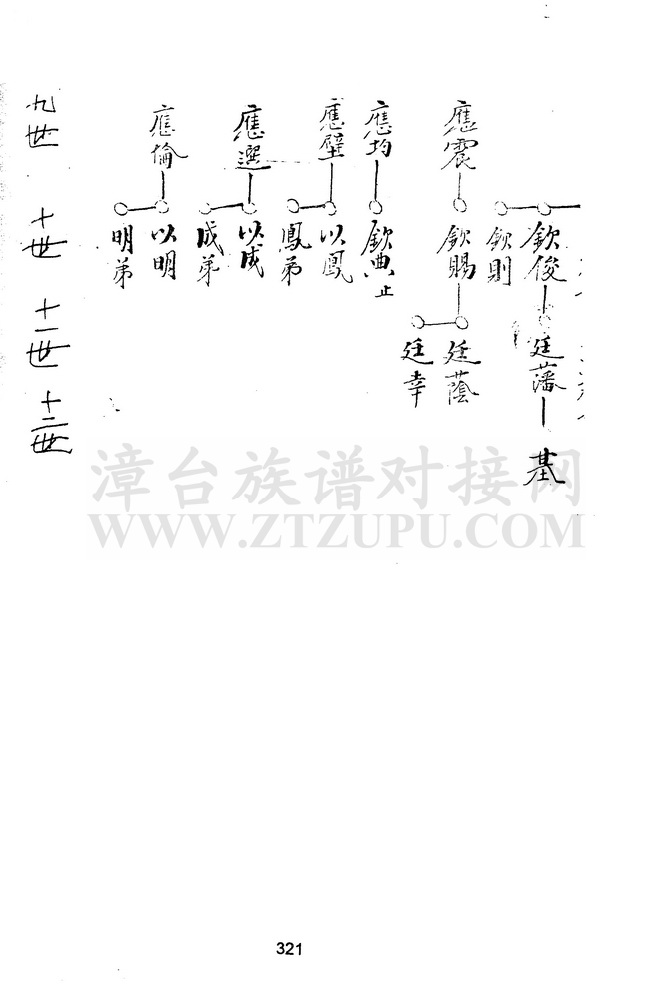 應震
應均
應壁
應選
應倫
九世
欽俊
欽則
欽賜
欽典止
以鳳
鳳弟
以成
成弟
以明
明弟
十世
廷藩
廷蔭
廷幸
十一世
基
十二世
漳台族谱对接网
WWW.ZTZUPU.COM
321